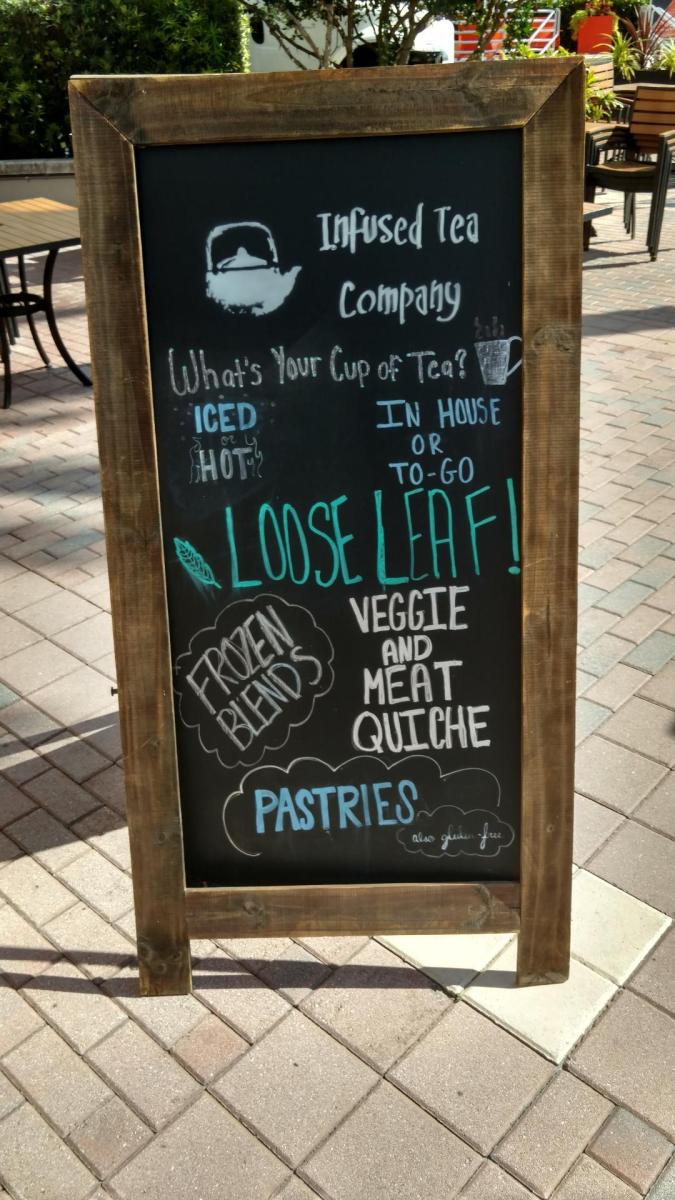 Infused Tea
Company
What's Your Cup of Tea?
ICED
or
HOT
IN HOUSE
OR
TO-GO
LOOSE LEAF!
FROZEN
BLENDS
VEGGIE
AND
MEAT
QUICHE
PASTRIES
also gluten-free